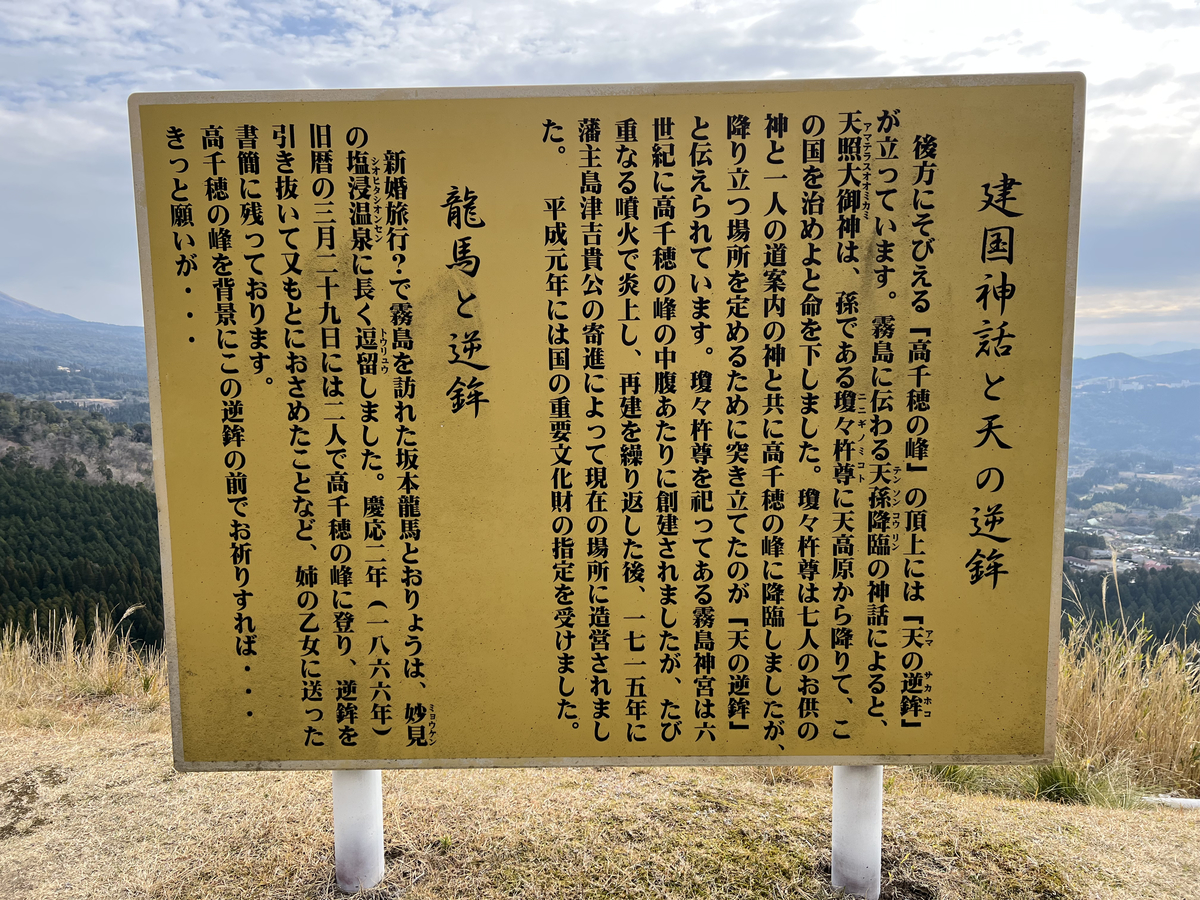 建国神話と天の逆鉾
後方にそびえる『高千穂の峰』の頂上には『天の逆鉾』
アマ サカホコ
が立っています。霧島に伝わる天孫降臨の神話によると、
テンソンコウリン
天照大御神は、孫である瓊々杵尊に天高原から降りて、こ
アマテラスオオミカミ ニニギノミコト
の国を治めよと命を下しました。瓊々杵尊は七人のお供の
神と一人の道案内の神と共に高千穂の峰に降臨しましたが、
降り立つ場所を定めるために突き立てたのが『天の逆鉾』
と伝えられています。瓊々杵尊を祀ってある霧島神宮は六
世紀に高千穂の峰の中腹あたりに創建されましたが、たび
重なる噴火で炎上し、再建を繰り返した後、一七一五年に
藩主島津吉貴公の寄進によって現在の場所に造営されまし
た。 平成元年には国の重要文化財の指定を受けました。
龍馬と逆鉾
新婚旅行?で霧島を訪れた坂本龍馬とおりょうは、妙見
ミヨウケン
の塩浸温泉に長く逗留しました。慶応二年(一八六六年)
シオヒタシオンセン トウリュウ
旧暦の三月二十九日には二人で高千穂の峰に登り、逆鉾を
引き抜いて又もとにおさめたことなど、姉の乙女に送った
書簡に残っております。
高千穂の峰を背景にこの逆鉾の前でお祈りすれば・・・
きっと願いが・・・